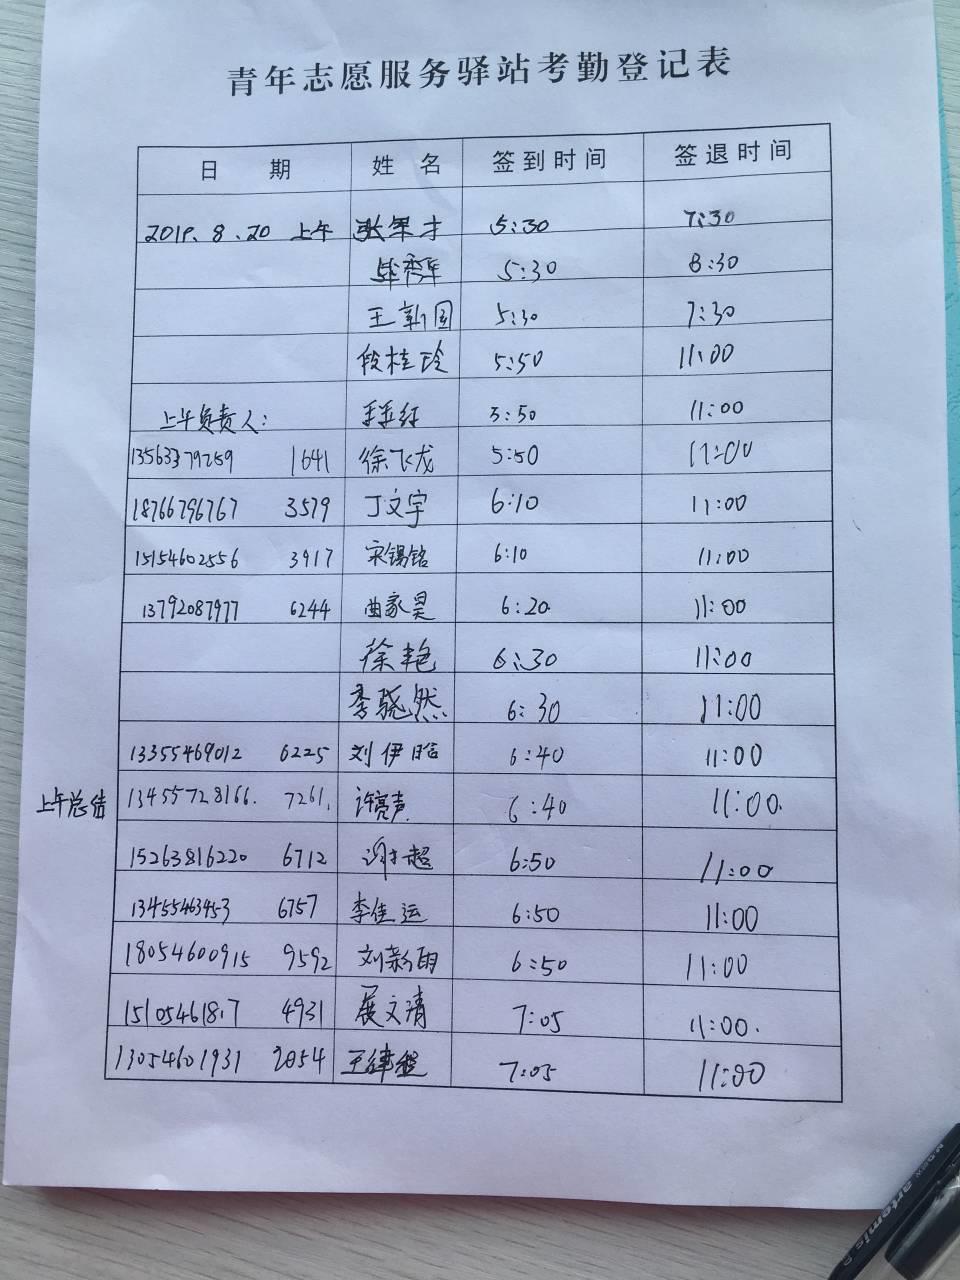 青年志愿服务驿站考勤登记表
日 期 姓 名 签到时间 签退时间
2019.8.20 上午 张军才 5:30 7:30
毕秀军 5:30 8:30
王新国 5:30 7:30
段桂玲 5:50 11:00
上午负责人: 红 5:50 11:00
13563379259 1641 徐飞龙 5:50 11:00
18766796767 3579 丁文宇 6:10 11:00
15154602556 3917 宋锡铭 6:10 11:00
13792087977 6244 曲家昊 6:20 11:00
徐艳 6:30 11:00
李骁然 6:30 11:00
13355469012 6225 刘伊晗 6:40 11:00
上午总结 13455728166. 7261. 许亮声 6:40 11:00.
15263816220 6712 谢超 6:50 11:00
13455463453 6757 李佳运 6:50 11:00
18054600915 9592 刘新雨 6:50 11:00
151054618.7 4931 展文清 7:05 11:00.
13054601931 2054 王 7:05 11:00
artemis